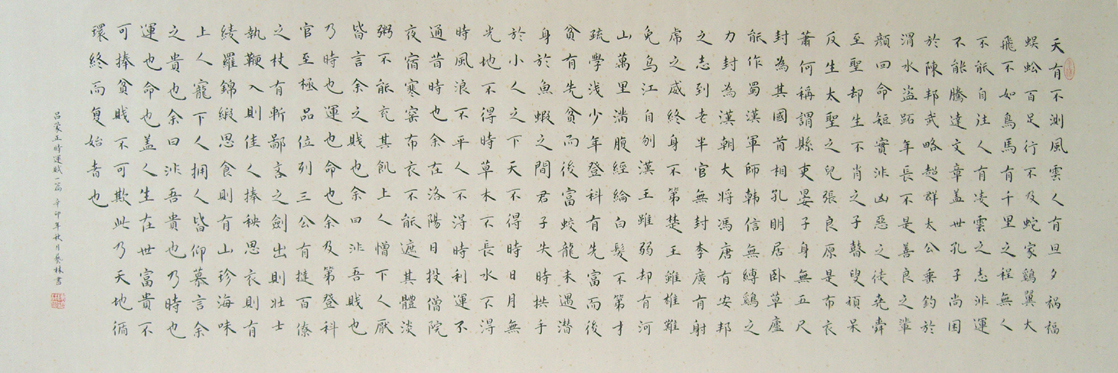 天有不測風雲人有旦夕禍福
蜈蚣百足行不及蛇家鷄翼大
飛不如鳥馬有千里之程無人
不能自往人有凌雲之志非運
不能騰達文章蓋世孔子尚困
於陳邦武略超群太公垂釣於
渭水盜跖年長不是善良之輩
顏回命短實非凶惡之徒堯舜
至聖却生不肖之子瞽叟頑呆
反生大聖之兒張良原是布衣
蕭何稱謂縣吏晏子身無五尺
封為其國首相孔明居卧草廬
能作蜀漢軍師韓信無縛鷄之
力封為漢朝大將馮唐有安邦
之志到老半官無封李廣有射
虎之威終身不第楚王雖雄難
免烏江自刎漢王雖弱却有河
山萬里滿腹經綸白髮不第才
疏學淺少年登科有先富而後
貧有先貧而後富蛟龍未遇潛
身於魚蝦之間君子失時拱手
於小人之下天不得時日月無
光地不得時草木不長水不得
時風浪不平人不得時利運不
通昔時也余在洛陽日投僧院
夜宿寒窯布衣不能遮其體淡
粥不能充其飢上人憎下人厭
皆言余之賤也余曰非吾賤也
乃時也運也命也余及第登科
官至極品位列三公有撻百僚
之杖有斬鄙吝之劍出則壯士
執鞭入則佳人捧秧思衣則有
綾羅錦緞思食則有山珍海味
上人寵下人擁人皆仰慕言余
之貴也余曰非吾貴也乃時也
運也命也蓋人生在世富貴不
可捧貧賤不可欺此乃天地循
環終而復始者也
呂蒙正時運賦一篇 辛卯年秋月葵林書